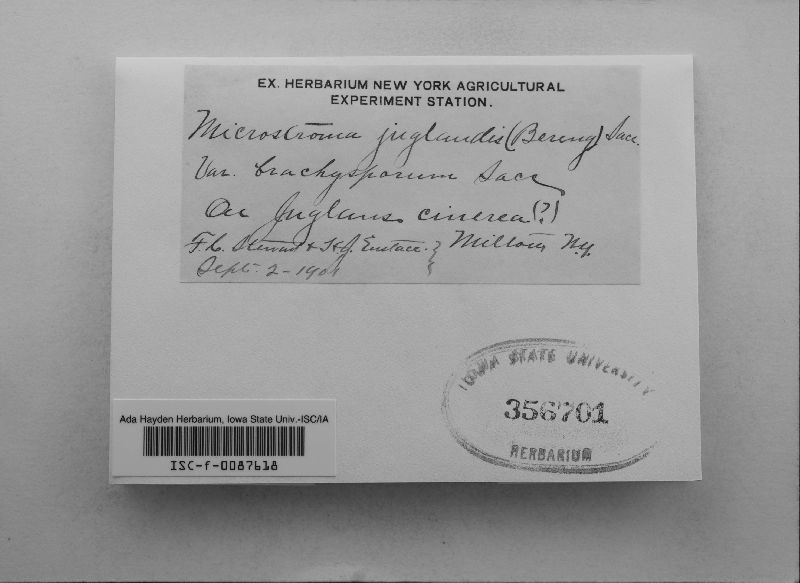 EX. HERBARIUM NEW YORK AGRICULTURAL
EXPERIMENT STATION.
Microstroma juglandis (Bereng) Sacc.
Var. brachysporum Sacc
On Juglans cinerea (?)
F.C. Stewart & H.J. Eustace. } Milton N.Y.
Sept. 2-1901
IOWA STATE UNIVERSITY
356701
HERBARIUM
Ada Hayden Herbarium, Iowa State Univ.-ISC/IA
ISC-f-0087618